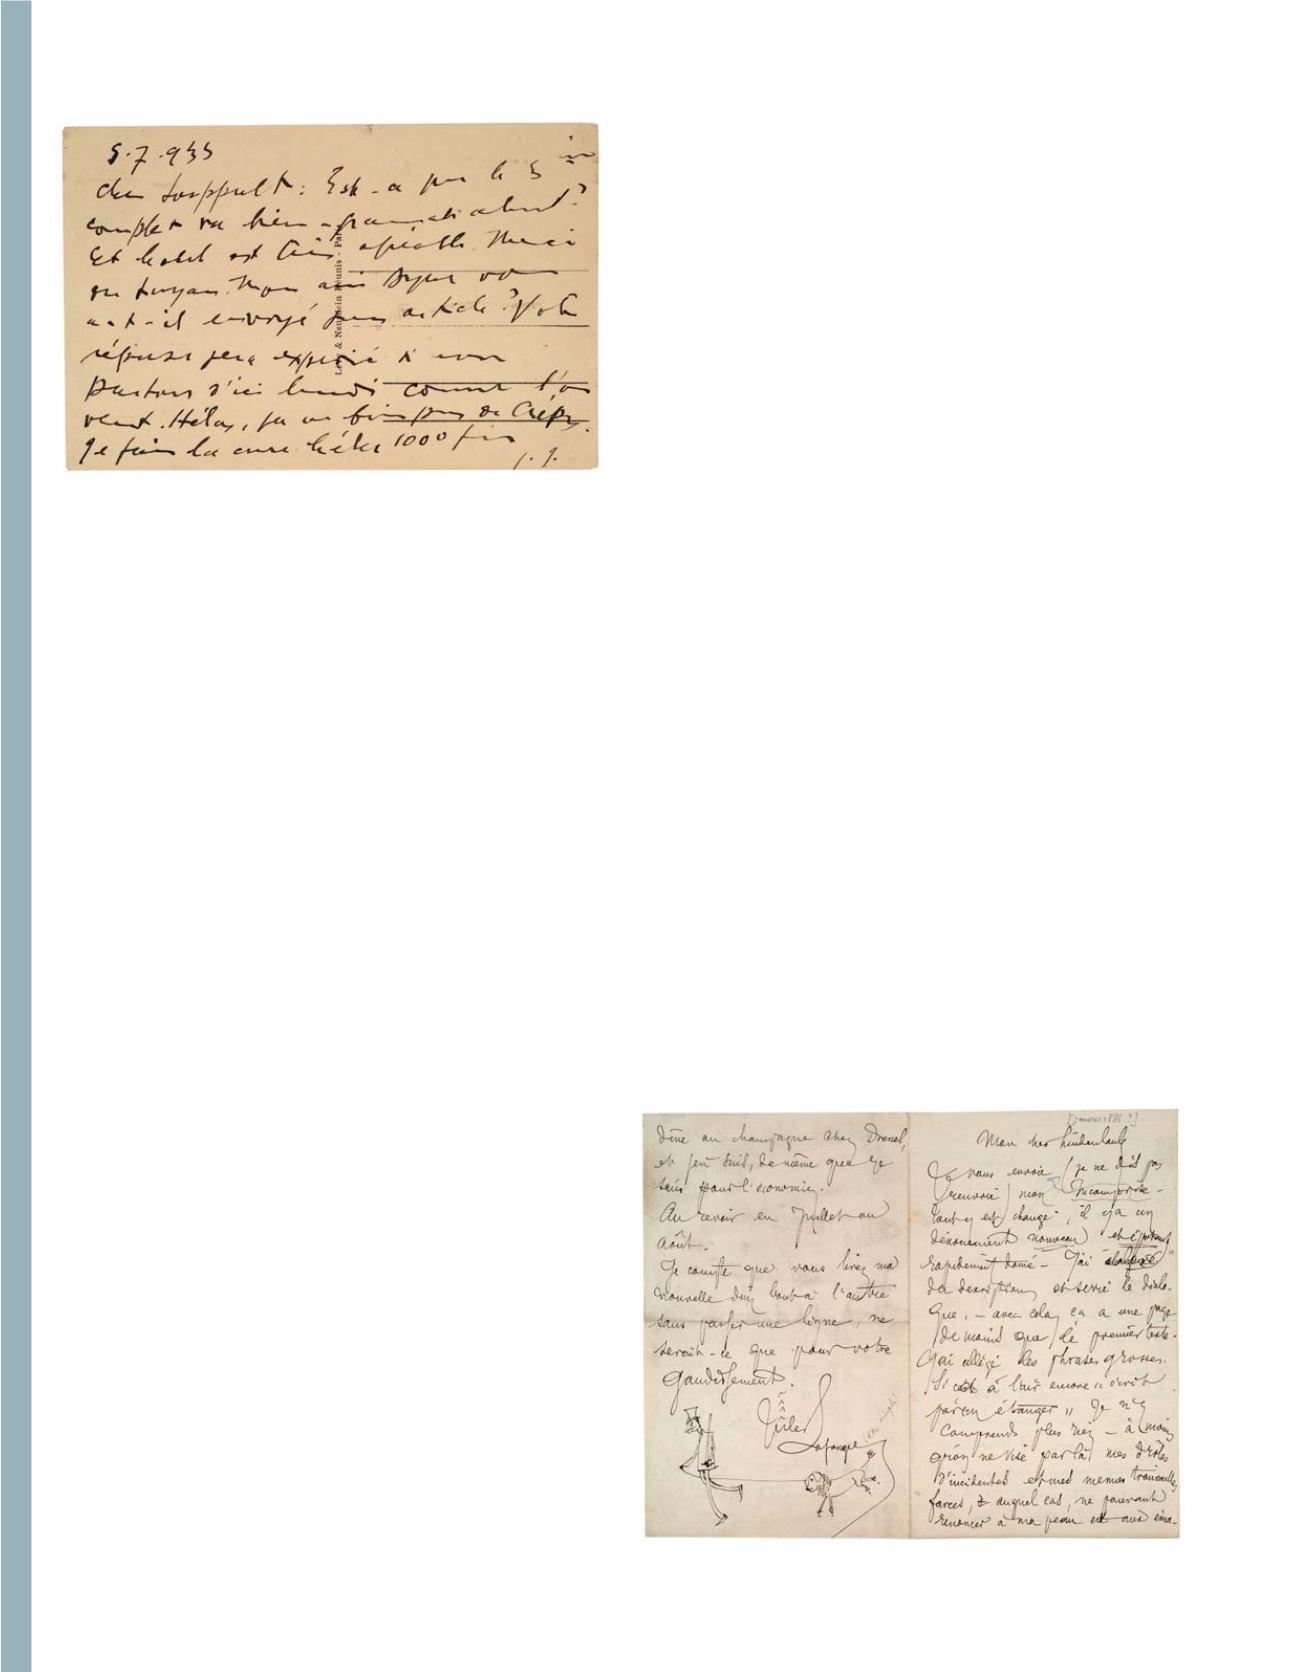 5.7.935
cher Souppult : Est-ce que le 5
complet va bien - grammaticalement ?
Et hotel est très agréable. Merci
du tuyau. Mon ami vous
a-t-il envoyé son article ? Votre
réponse sera expédié à
s'ici lundi comme l'on
veut. Hélas, je ne fais pas de
Je fais la cure hélas 1000 fois
J. J.
Levy & Neurdein Réunis - Paris
dîne au champagne chez Drexel,
et j'en suis, de même que je
suis pour l'économie.
Au revoir en Juillet ou
Août.
Je compte que vous lirez ma
nouvelle d'un bout à l'autre
sans passer une ligne, ne
serait-ce que pour votre
Gaudissement.
Jules
Laforgue
[janvier 1882 ?]
Mon cher Lindenlaub
Je vous envoie (je ne dis pas
renvoie) mon Incomprise -
tout y est changé, il y a un
dénouement nouveau et
rapidement donné - J'ai
des descriptions et serré le dialo-
gue. - avec cela, ça a une page
de moins que le premier texte.
J'ai allégé les phrases grosses.
Si c'est à l'air encore "écrit
par un étranger" Je n'y
comprends plus rien - à moins
qu'on ne vise par là mes drôles
d'incidentes et mes menues trouvailles
farces, auquel cas, ne pouvant
renoncer à ma peau